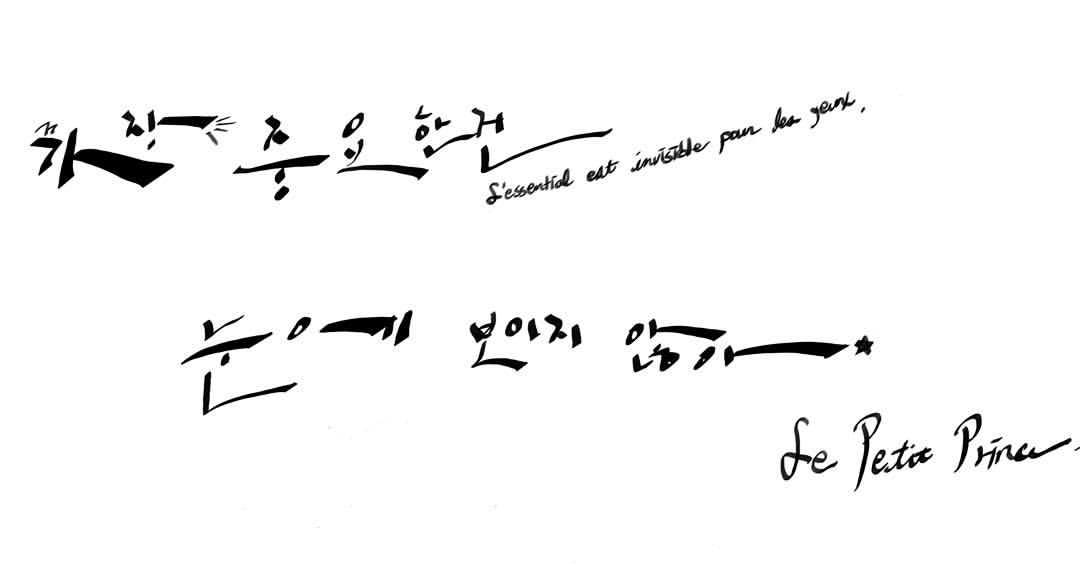 가장 중요한 건
L'essential est invisible pour les yeux.
눈에 보이지 않아★
Le Petit Prince.